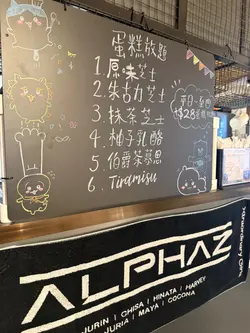 蛋糕放題
1. 原味芝士
2. 朱古力芝士
3. 抹茶芝士
4. 柚子乳酪
5. 伯爵茶慕思
6. Tiramisu
平日
$128
ALPHAZ
Xtraordinary Girls
JURIN | CHISA | HINATA | HARVEY
JURIA | MAYA | COCONA